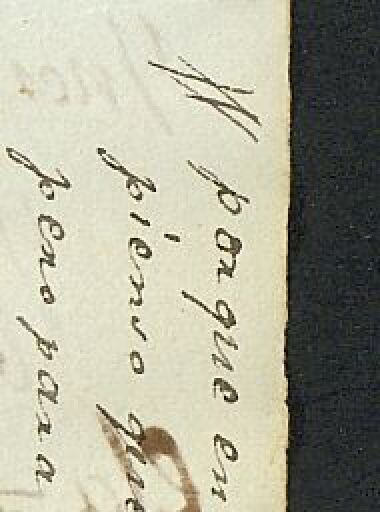 porque en
pienso que
pero para